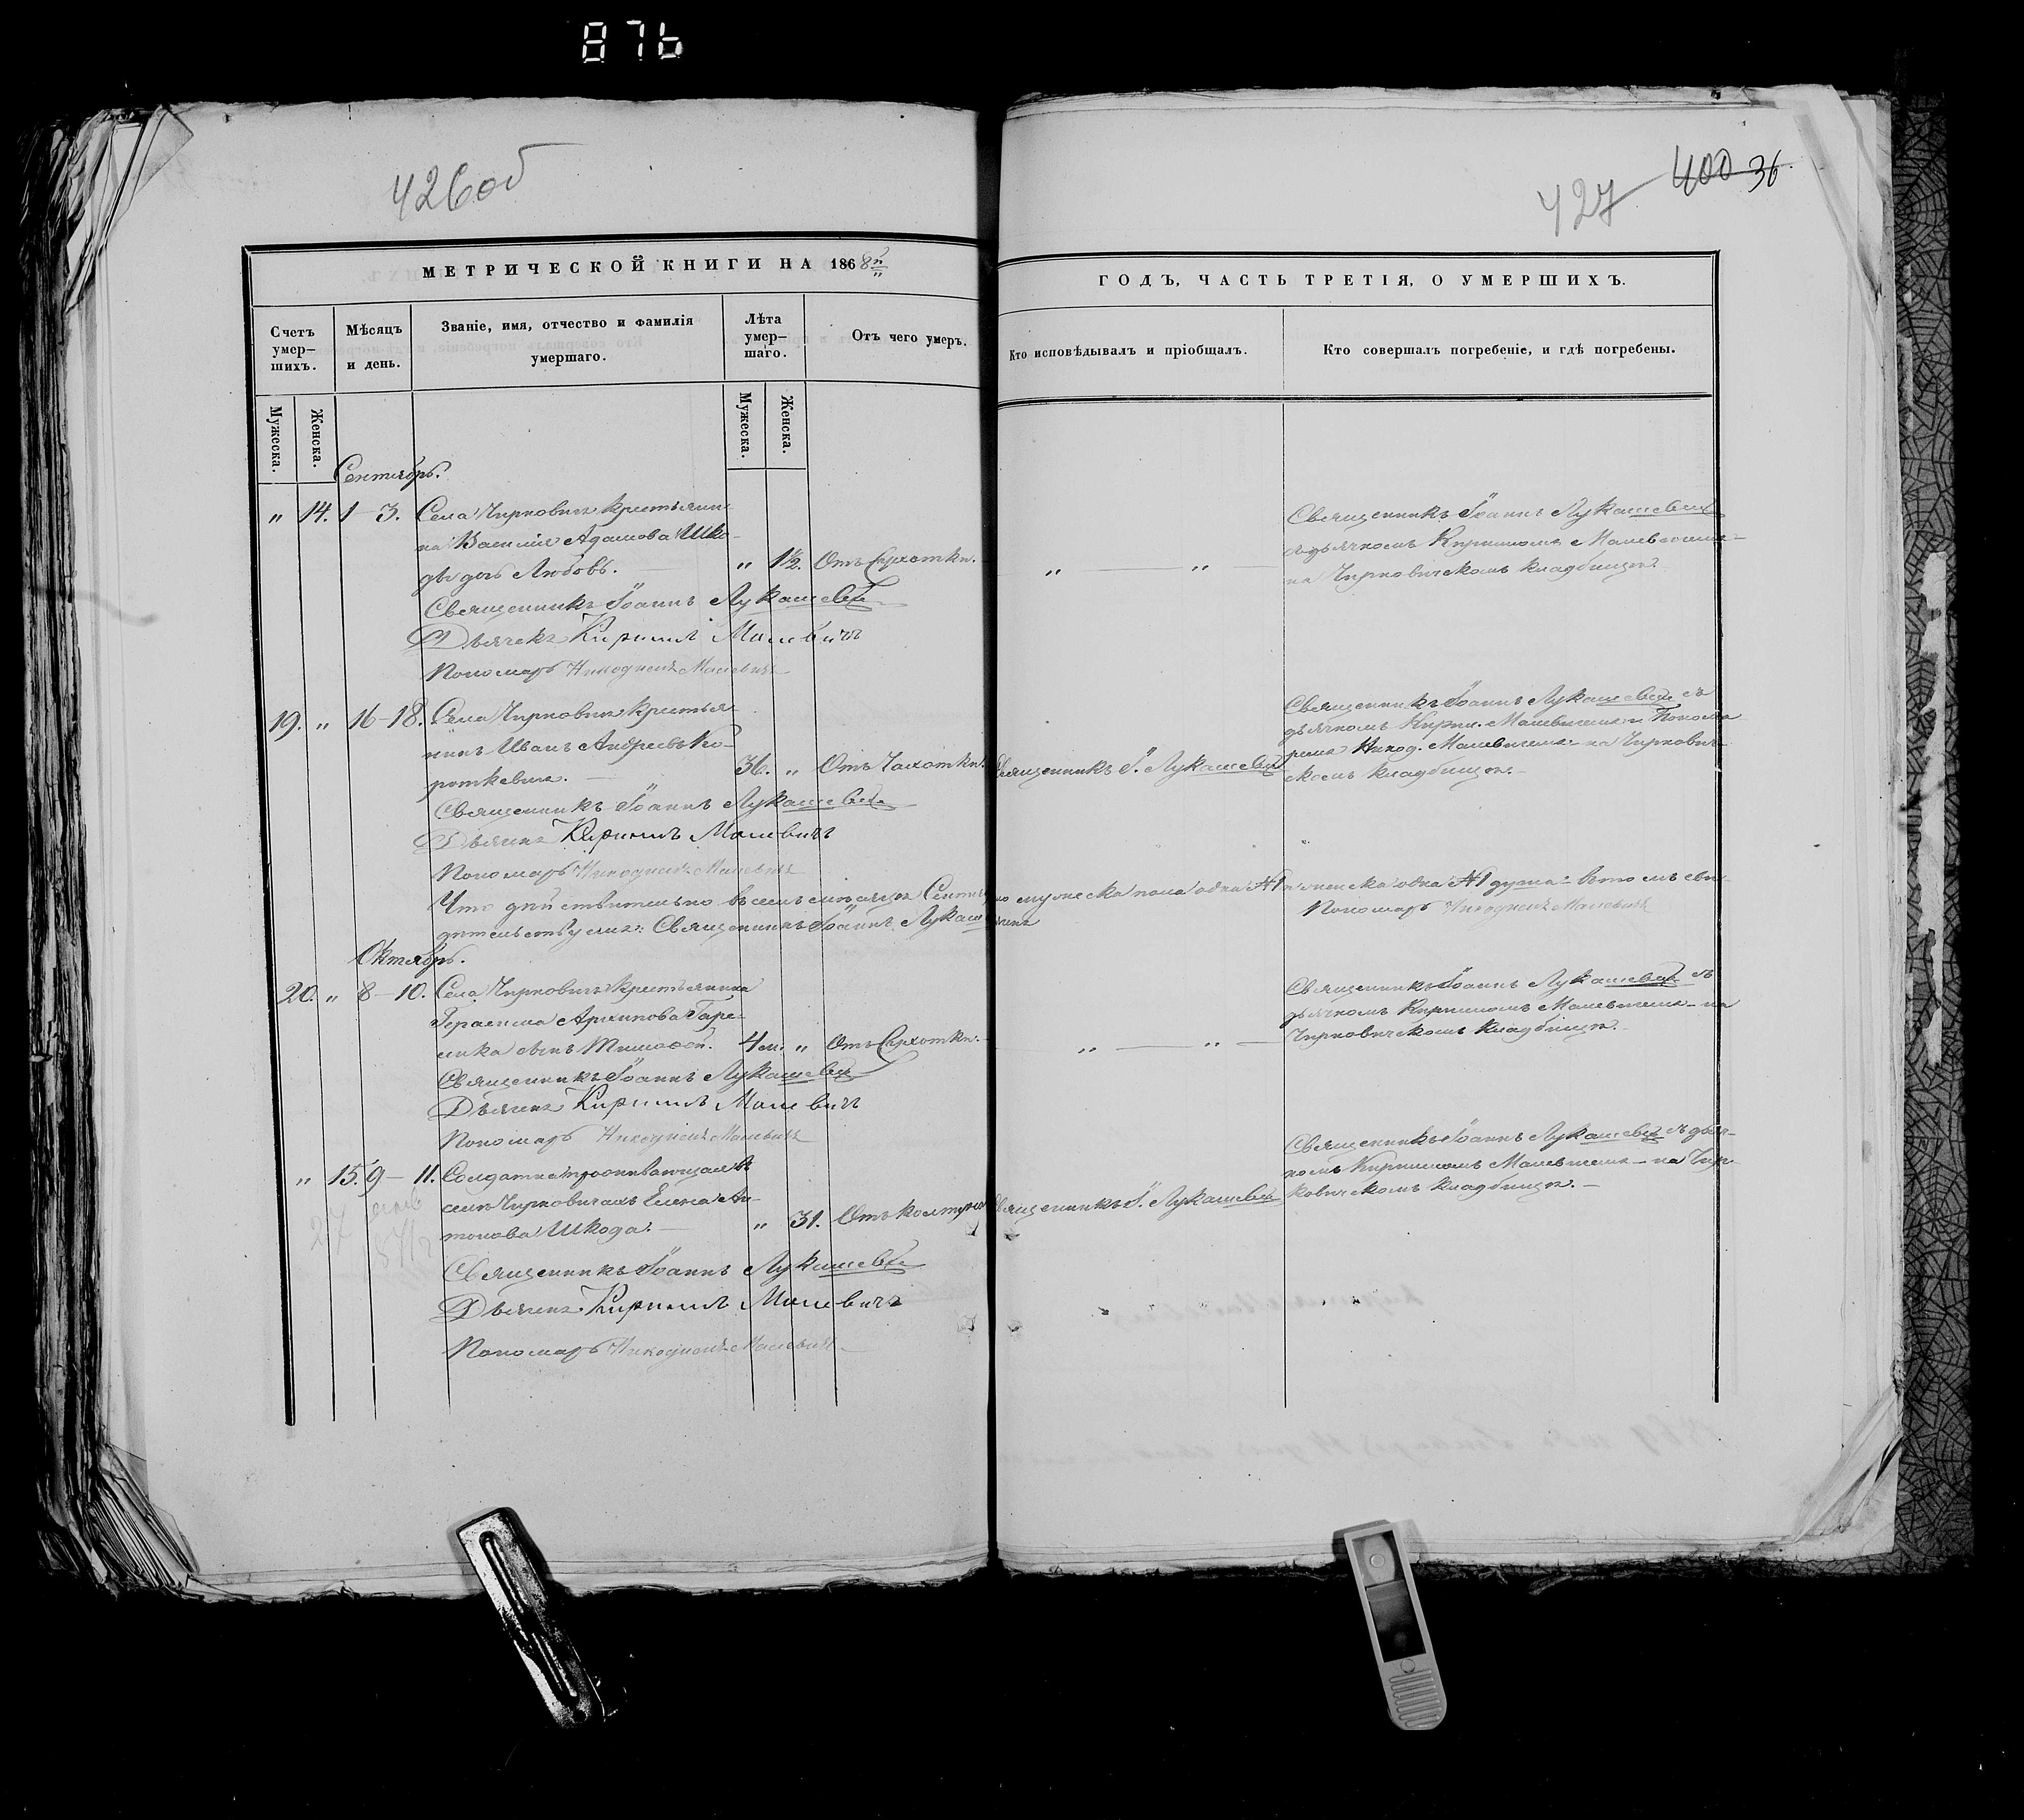 876
426об
427 400 36
МЕТРИЧЕСКОЙ КНИГИ НА 1868й
ГОДЪ, ЧАСТЬ ТРЕТІЯ, О УМЕРШИХЪ.
Счетъ умер-
шихъ.
Мѣсяцъ
и день.
Званіе, имя, отчество и фамилія
умершаго.
Лѣта
умер-
шаго.
Отъ чего умеръ.
Кто исповѣдывалъ и пріобщалъ.
Кто совершалъ погребеніе, и гдѣ погребены.
Мужеска.
Женска.
Мужеска.
Женска.
Сентябрь.
„ 14. 1-3. Села Чирковичъ крестьяни-
на Василія Адамова Шко-
ды дочь Любовь. „ 1½. Отъ Сухотки. „ „
Священникъ Іоаннъ Лукашевичъ
Дьячекъ Кириллъ Малевичъ
Пономарь Никодимъ Малевичъ
Священникъ Іоаннъ Лукашевичъ
съ дьячкомъ Кирилломъ Малевичемъ-
на Чирковичскомъ кладбищѣ.
19. „ 16-18. Села Чирковичъ крестья-
нинъ Иванъ Андреевъ Ко-
роткевичъ. 36. „ Отъ Чахотки. Священникъ І. Лукашевичъ
Священникъ Іоаннъ Лукашевичъ
Дьячекъ Кириллъ Малевичъ
Пономарь Никодимъ Малевичъ
Священникъ Іоаннъ Лукашевичъ съ
дьячкомъ Кирил. Малевичемъ и Понома-
ремъ Никод. Малевичемъ на Чиркович-
скомъ кладбищѣ.
Что дѣйствительно въ семъ мѣсяцѣ мужеска пола одна №1 и женска одна №1 душа въ томъ сви-
дѣтельствуемъ: Священникъ Іоаннъ Лукашевичъ
Пономарь Никодимъ Малевичъ
Октябрь.
20. „ 8-10. Села Чирковичъ крестьянина
Герасима Архипова
сынъ Тимофей. 4 м. „ Отъ Сухотки. „ „
Священникъ Іоаннъ Лукашевичъ
Дьячекъ Кириллъ Малевичъ
Пономарь Никодимъ Малевичъ
Священникъ Іоаннъ Лукашевичъ съ
дьячкомъ Кирилломъ Малевичемъ-на
Чирковичскомъ кладбищѣ.
„ 15. 9-11. Солдатка проживающая въ
селѣ Чирковичахъ Елена Ан-
тонова Шкода. „ 31. Отъ колтуна Священникъ І. Лукашевичъ
Священникъ Іоаннъ Лукашевичъ
Дьячекъ Кириллъ Малевичъ
Пономарь Никодимъ Малевичъ
Священникъ Іоаннъ Лукашевичъ съ дьяч-
комъ Кирилломъ Малевичемъ-на Чир-
ковичскомъ кладбищѣ.